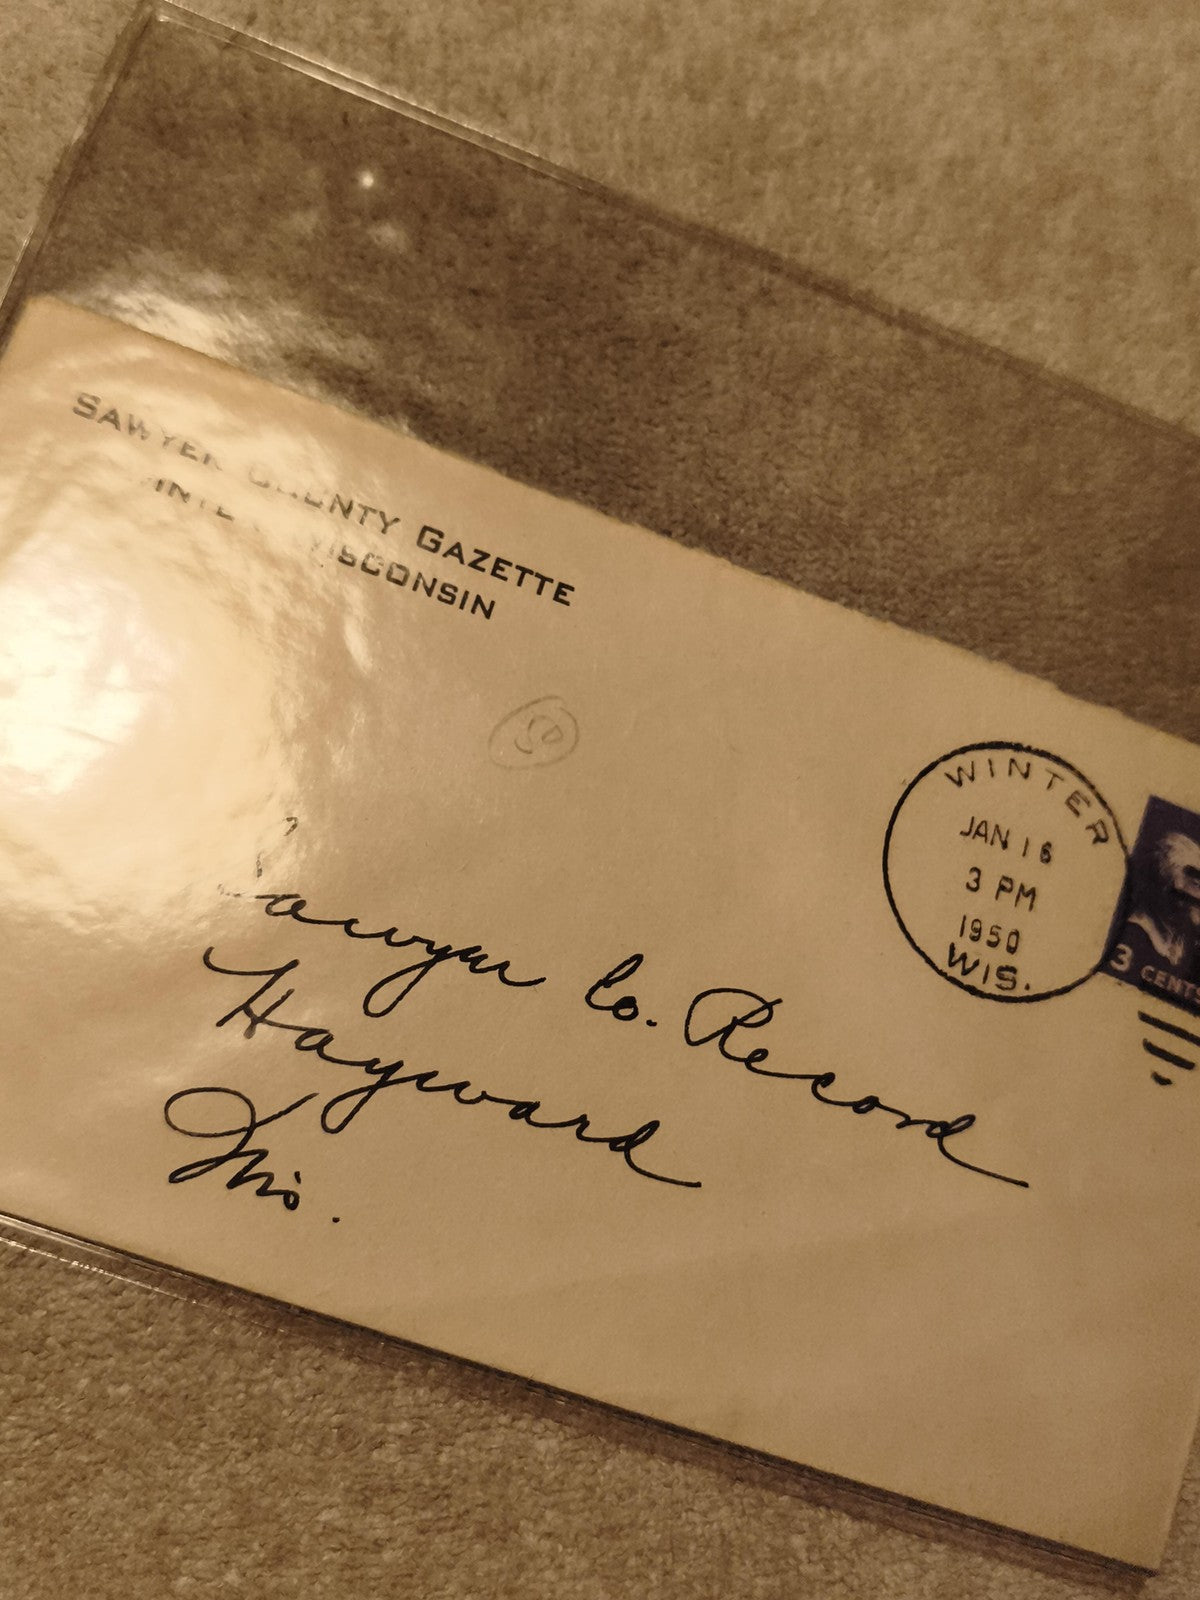 SAWYER COUNTY GAZETTE
WINTER, WISCONSIN
50
WINTER
JAN 16
3 PM
1950
WIS.
3 CENTS
Sawyer Co. Record
Hayward
Wis.